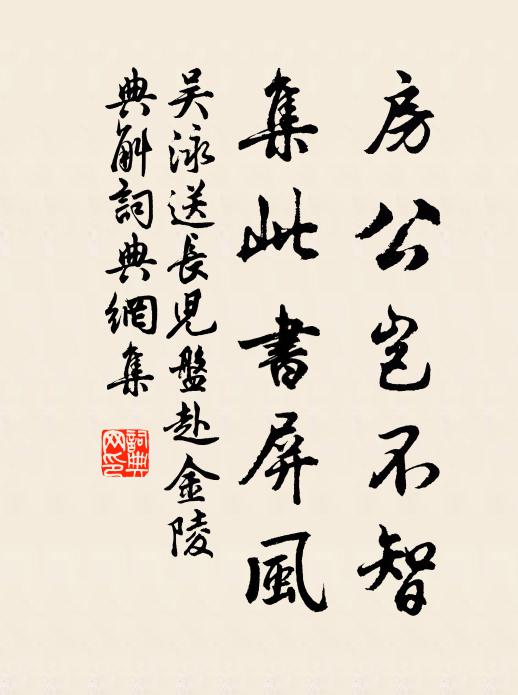 房公岂不智
集此書屏風
吴泳送長児盤赴金陵
典斛詞典網集
詞典网印